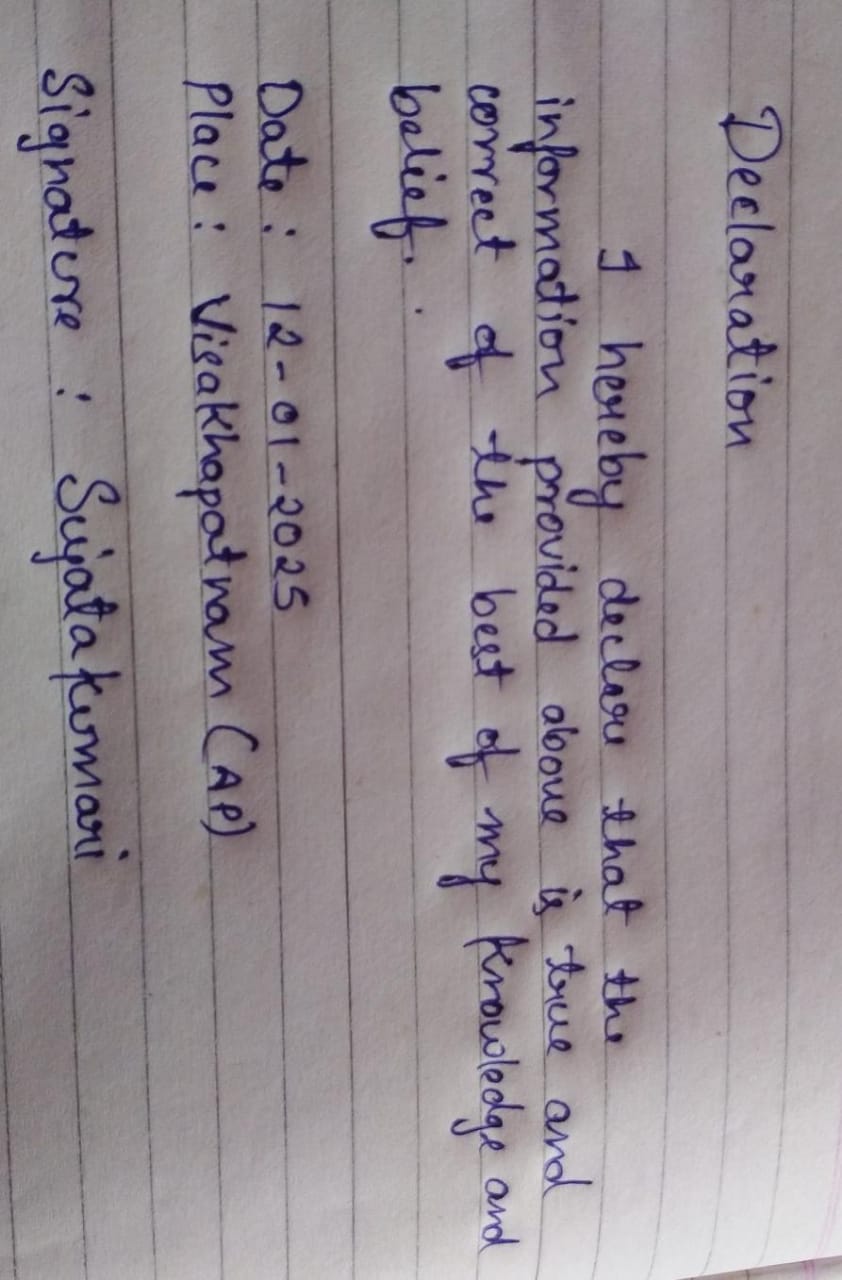 Declaration
I hereby declare that the
information provided above is true and
correct of the best of my knowledge and
belief.
Date : 12-01-2025
Place : Visakhapatnam (AP)
Signature : Sujata Kumari